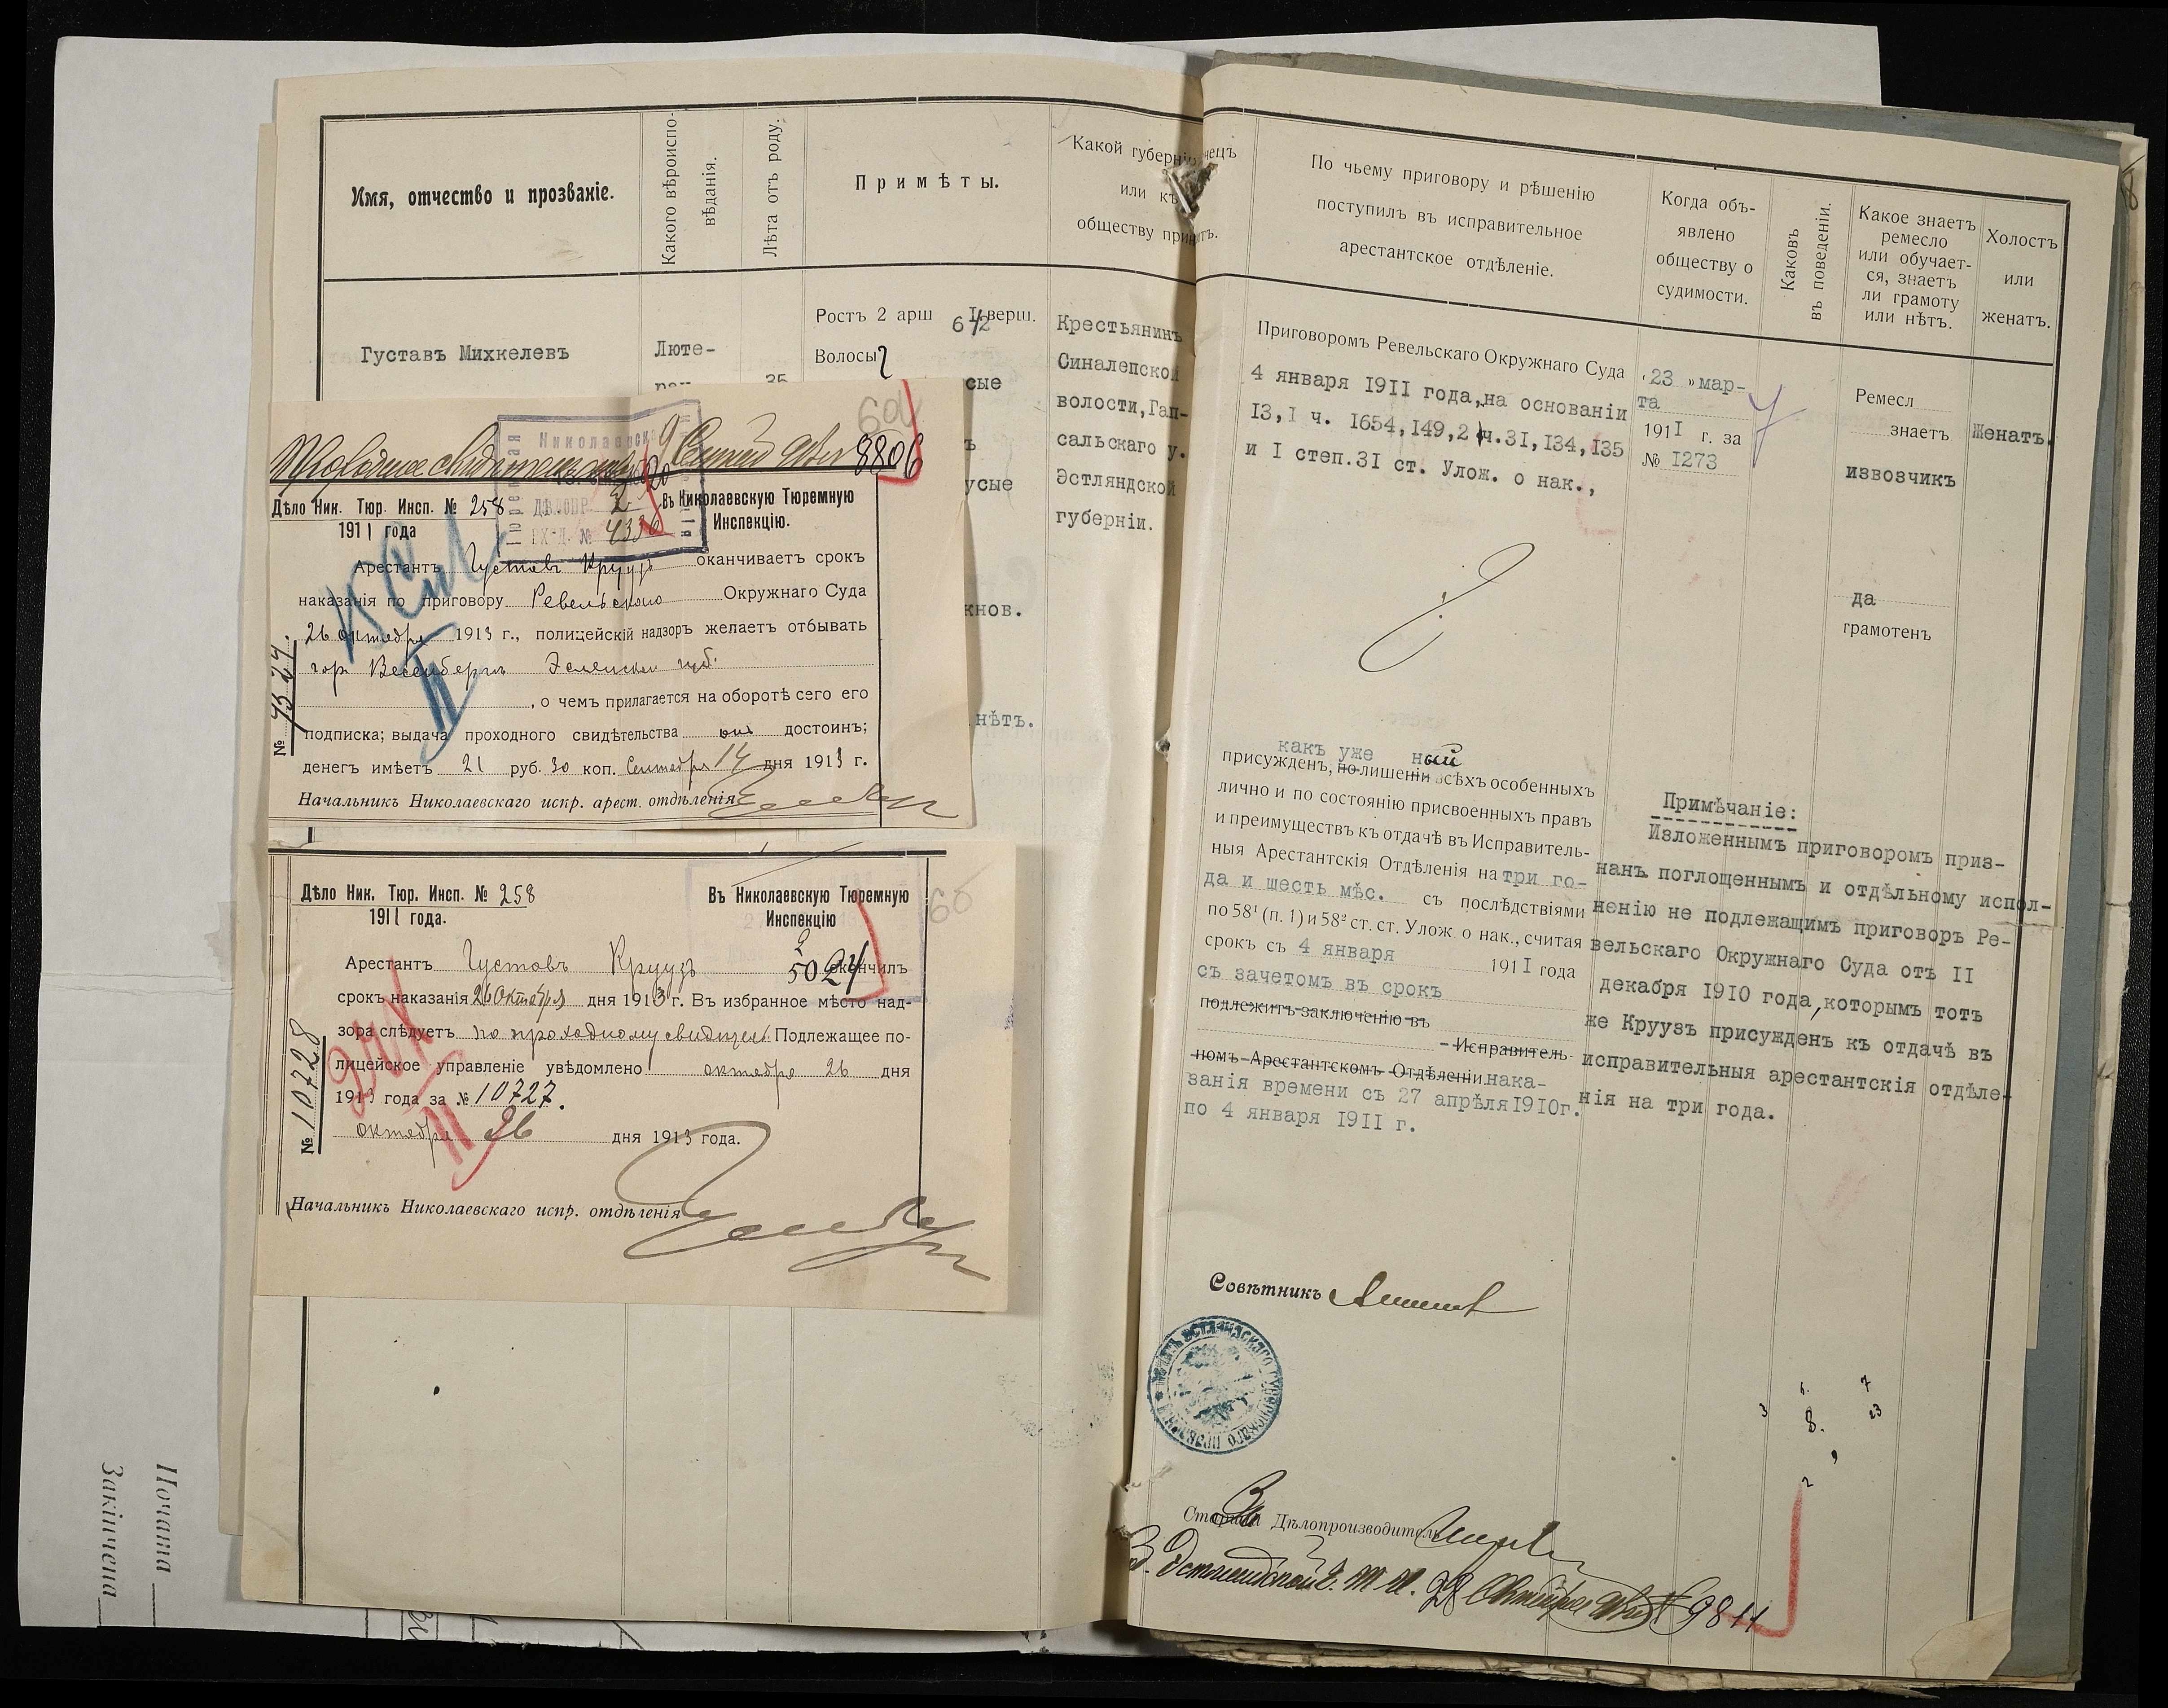 Имя, отчество и прозваніе.
Какого вѣроиспо-
вѣданія.
Лѣта отъ роду.
Примѣты.
Какой губерніи
или къ
обществу
Густавъ Михкелевъ
Люте-
35
Ростъ 2 арш 6 1/2 верш.
Волосы
сые
усые
нѣтъ.
Крестьянинъ
Синалепской
волости, Гап-
сальскаго у.
Эстляндской
губерніи.
Проходное свидѣтельство
8806
Дѣло Ник. Тюр. Инсп. № 258
1911 года
Въ Николаевскую Тюремную
Инспекцію.
Арестантъ Густавъ Круузъ оканчиваетъ срокъ
наказанія по приговору Ревельскаго Окружнаго Суда
26 октября 1913 г., полицейскій надзоръ желаетъ отбывать
гор. Везенбергъ Эстлянской губ.
, о чемъ прилагается на оборотѣ сего его
подписка; выдача проходного свидѣтельства онъ достоинъ;
денегъ имѣетъ 21 руб. 30 коп. Сентября 14 дня 1913 г.
Начальникъ Николаевскаго испр. арест. отдѣленія
Дѣло Ник. Тюр. Инсп. № 258
1911 года.
Въ Николаевскую Тюремную
Инспекцію
Арестантъ Густовъ Круузъ окончилъ
5024
срокъ наказанія 26 Октября дня 1913 г. Въ избранное мѣсто над-
зора слѣдуетъ по проходному свидѣтел. Подлежащее по-
лицейское управленіе увѣдомлено октября 26 дня
1913 года за № 10727.
октября 26 дня 1913 года.
№ 10728
Начальникъ Николаевскаго испр. отдѣленія
По чьему приговору и рѣшенію
поступилъ въ исправительное
арестантское отдѣленіе.
Когда объ-
явлено
обществу о
судимости.
Каковъ
въ поведеніи.
Какое знаетъ
ремесло
или обучает-
ся, знаетъ
ли грамоту
или нѣтъ.
Холостъ
или
женатъ.
Приговоромъ Ревельскаго Окружнаго Суда
4 января 1911 года, на основаніи
13,1 ч. 1654,149,2 ч.31,134,135
и I степ.31 ст. Улож. о нак.,
23 » мар-
та
1911 г. за
№ 1273
Ремесл
знаетъ
извозчикъ
да
грамотенъ
Женатъ.
какъ уже ный
присужденъ, по лишеніи всѣхъ особенныхъ
лично и по состоянію присвоенныхъ правъ
и преимуществъ къ отдачѣ въ Исправитель-
ныя Арестантскія Отдѣленія на три го-
да и шесть мѣс. съ послѣдствіями
по 58¹ (п. 1) и 58² ст. ст. Улож. о нак., считая
срокъ съ 4 января 1911 года
съ зачетомъ въ срокъ
подлежитъ заключенію въ
Исправитель-
номъ Арестантскомъ Отдѣленіи. нака-
занія времени съ 27 апрѣля 1910г.
по 4 января 1911 г.
Примѣчаніе:
Изложеннымъ приговоромъ приз-
нанъ поглощеннымъ и отдѣльному испол-
ненію не подлежащимъ приговоръ Ре-
вельскаго Окружнаго Суда отъ II
декабря 1910 года, которымъ тотъ
же Круузъ присужденъ къ отдачѣ въ
исправительныя арестантскія отдѣле-
нія на три года.
Совѣтникъ
Дѣлопроизводитель
9811
Почата
Закінчена